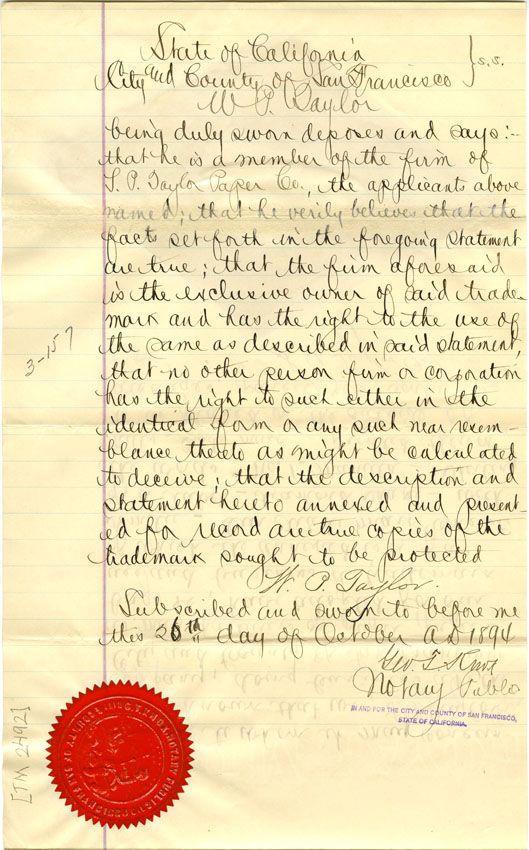 State of California
City and County of San Francisco } s.s.
W. P. Taylor
being duly sworn deposes and says:-
that he is a member of the firm of
S. P. Taylor Paper Co., the applicants above
named; that he verily believes that the
facts set forth in the foregoing statement
are true; that the firm aforesaid
is the exclusive owner of said trade
mark and has the right to the use of
the same as described in said statement,
that no other person firm or corporation
has the right to such either in the
identical form or any such near resem-
blance thereto as might be calculated
to deceive; that the description and
statement hereto annexed and present-
ed for record are true copies of the
trademark sought to be protected
W. P. Taylor.
Subscribed and sworn to before me
this 26th day of October AD 1894
Geo. T. Knox
Notary Public
IN AND FOR THE CITY AND COUNTY OF SAN FRANCISCO,
STATE OF CALIFORNIA.
3-157
[TM 2492]